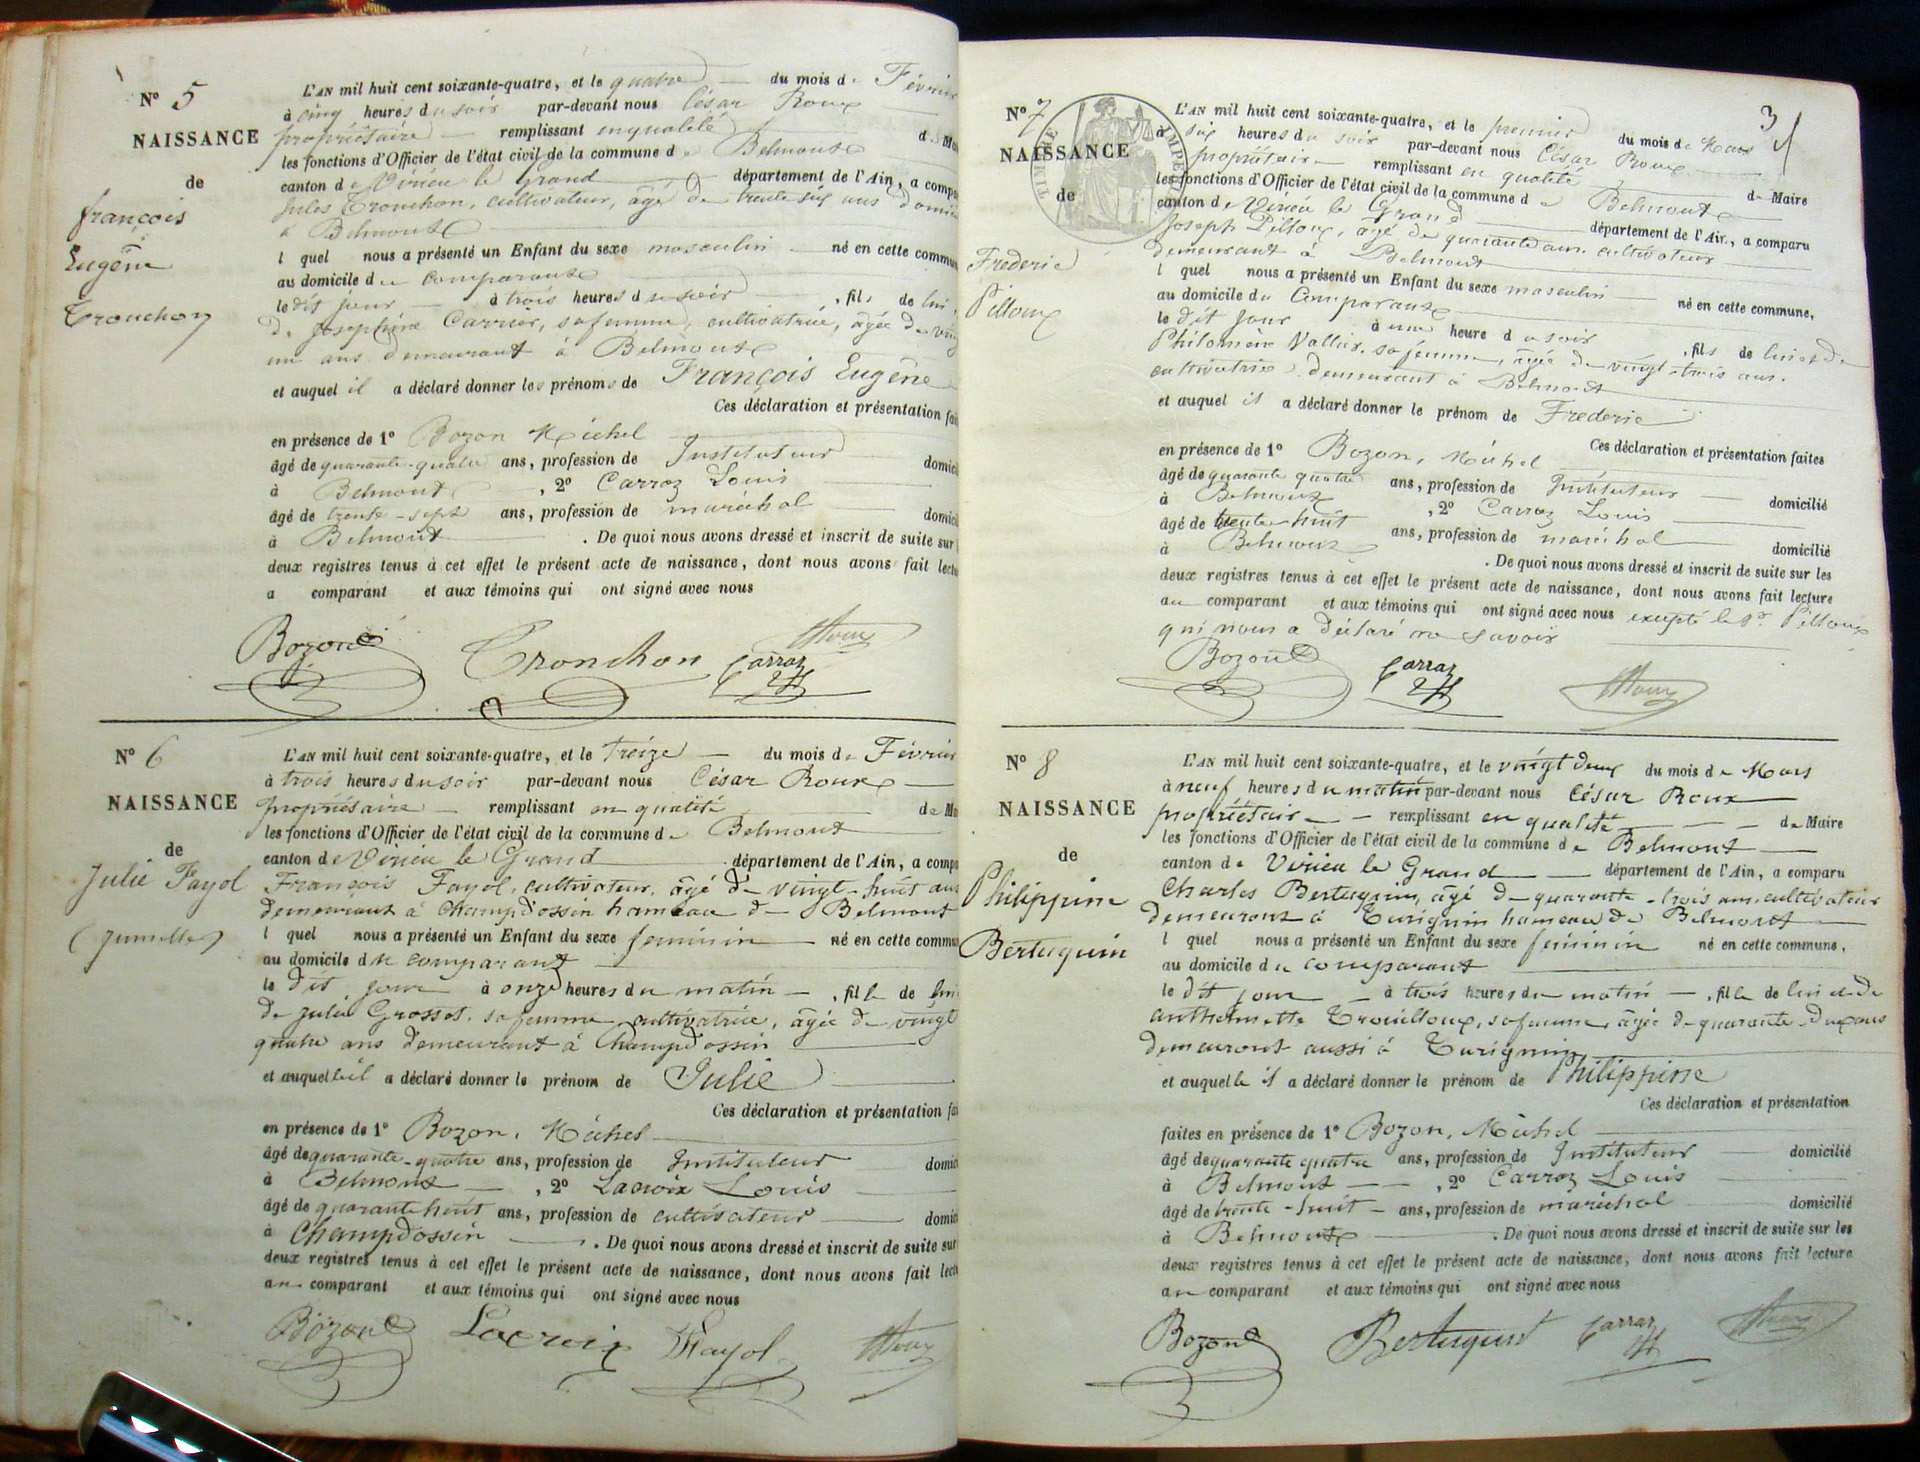 N° 5
NAISSANCE
de
françois
Eugène
Tronchon
L'AN mil huit cent soixante-quatre, et le quatre du mois de Février
à cinq heures du soir par-devant nous César Roux
propriétaire remplissant en qualité de Ma
les fonctions d'Officier de l'état civil de la commune de Belmont
canton de Virieu le Grand département de l'Ain, a compa
Jules Tronchon, cultivateur, âgé de trente six ans domici
à Belmont
l quel nous a présenté un Enfant du sexe masculin né en cette commun
au domicile du comparant
le dit jour à trois heures du soir, fils de lui,
de Joséphine Carrier, sa femme, cultivatrice, âgée de ving
un ans demeurant à Belmont
et auquel il a déclaré donner les prénoms de François Eugène
Ces déclaration et présentation fai
en présence de 1° Bozon Michel
âgé de quarante-quatre ans, profession de Instituteur domici
à Belmont, 2° Carraz Louis
âgé de trente-sept ans, profession de maréchal domici
à Belmont. De quoi nous avons dressé et inscrit de suite sur l
deux registres tenus à cet effet le présent acte de naissance, dont nous avons fait lectu
a comparant et aux témoins qui ont signé avec nous
Bozon Tronchon Carraz Roux
N° 6
NAISSANCE
de
Julie Fayol
(Jumelle)
L'AN mil huit cent soixante-quatre, et le treize du mois de Février
à trois heures du soir par-devant nous César Roux
propriétaire remplissant en qualité de Ma
les fonctions d'Officier de l'état civil de la commune de Belmont
canton de Virieu le Grand département de l'Ain, a compa
François Fayol, cultivateur, âgé de vingt-huit ans
demeurant à Champdossin hameau de Belmont
l quel nous a présenté un Enfant du sexe feminin né en cette commu
au domicile du comparant
le dit jour à onze heures du matin, fille de lui
de Julie Grosset, sa femme, cultivatrice, âgée de vingt
quatre ans demeurant à Champdossin
et auquel il a déclaré donner le prénom de Julie
Ces déclaration et présentation fai
en présence de 1° Bozon, Michel
âgé de quarante-quatre ans, profession de Instituteur domici
à Belmont, 2° Lacroix Louis
âgé de quarante huit ans, profession de cultivateur domi
à Champdossin. De quoi nous avons dressé et inscrit de suite sur
deux registres tenus à cet effet le présent acte de naissance, dont nous avons fait lect
au comparant et aux témoins qui ont signé avec nous
Bozon Lacroix Fayol Roux
3
N° 7
NAISSANCE
de
Frederic
Pilloux
TIMBRE IMPERIAL
L'AN mil huit cent soixante-quatre, et le premier du mois de Mars
à six heures du soir par-devant nous César Roux
propriétaire remplissant en qualité de Maire
les fonctions d'Officier de l'état civil de la commune de Belmont
canton de Virieu le Grand département de l'Ain, a comparu
Joseph Pilloux, âgé de quarante ans, cultivateur
demeurant à Belmont
l quel nous a présenté un Enfant du sexe masculin né en cette commune,
au domicile du Comparant
le dit jour à une heure du soir, fils de lui et de
Philomène Vallier, sa femme, âgée de vingt-trois ans.
cultivatrice demeurant à Belmont
et auquel il a déclaré donner le prénom de Frederic
Ces déclaration et présentation faites
en présence de 1° Bozon, Michel
âgé de quarante quatre ans, profession de Instituteur domicilié
à Belmont, 2° Carraz Louis
âgé de trente huit ans, profession de maréchal domicilié
à Belmont. De quoi nous avons dressé et inscrit de suite sur les
deux registres tenus à cet effet le présent acte de naissance, dont nous avons fait lecture
au comparant et aux témoins qui ont signé avec nous excepté le Sr Pilloux
qui nous a déclaré ne savoir
Bozon Carraz Roux
N° 8
NAISSANCE
de
Philippine
Bertuquin
L'AN mil huit cent soixante-quatre, et le vingt deux du mois de Mars
à neuf heures du matin par-devant nous César Roux
propriétaire remplissant en qualité de Maire
les fonctions d'Officier de l'état civil de la commune de Belmont
canton de Virieu le Grand département de l'Ain, a comparu
Charles Bertuquin, âgé de quarante-trois ans cultivateur
demeurant à Turignin hameau de Belmont
l quel nous a présenté un Enfant du sexe feminin né en cette commune,
au domicile du comparant
le dit jour à trois heures du matin, fille de lui et de
anthelmette Trouilloux, sa femme, âgée de quarante-deux ans
demeurant aussi à Turignin
et auquelle il a déclaré donner le prénom de Philippine
Ces déclaration et présentation
faites en présence de 1° Bozon, Michel
âgé de quarante quatre ans, profession de Instituteur domicilié
à Belmont, 2° Carraz Louis
âgé de trente-huit ans, profession de maréchal domicilié
à Belmont. De quoi nous avons dressé et inscrit de suite sur les
deux registres tenus à cet effet le présent acte de naissance, dont nous avons fait lecture
au comparant et aux témoins qui ont signé avec nous
Bozon Bertuquin Carraz Roux